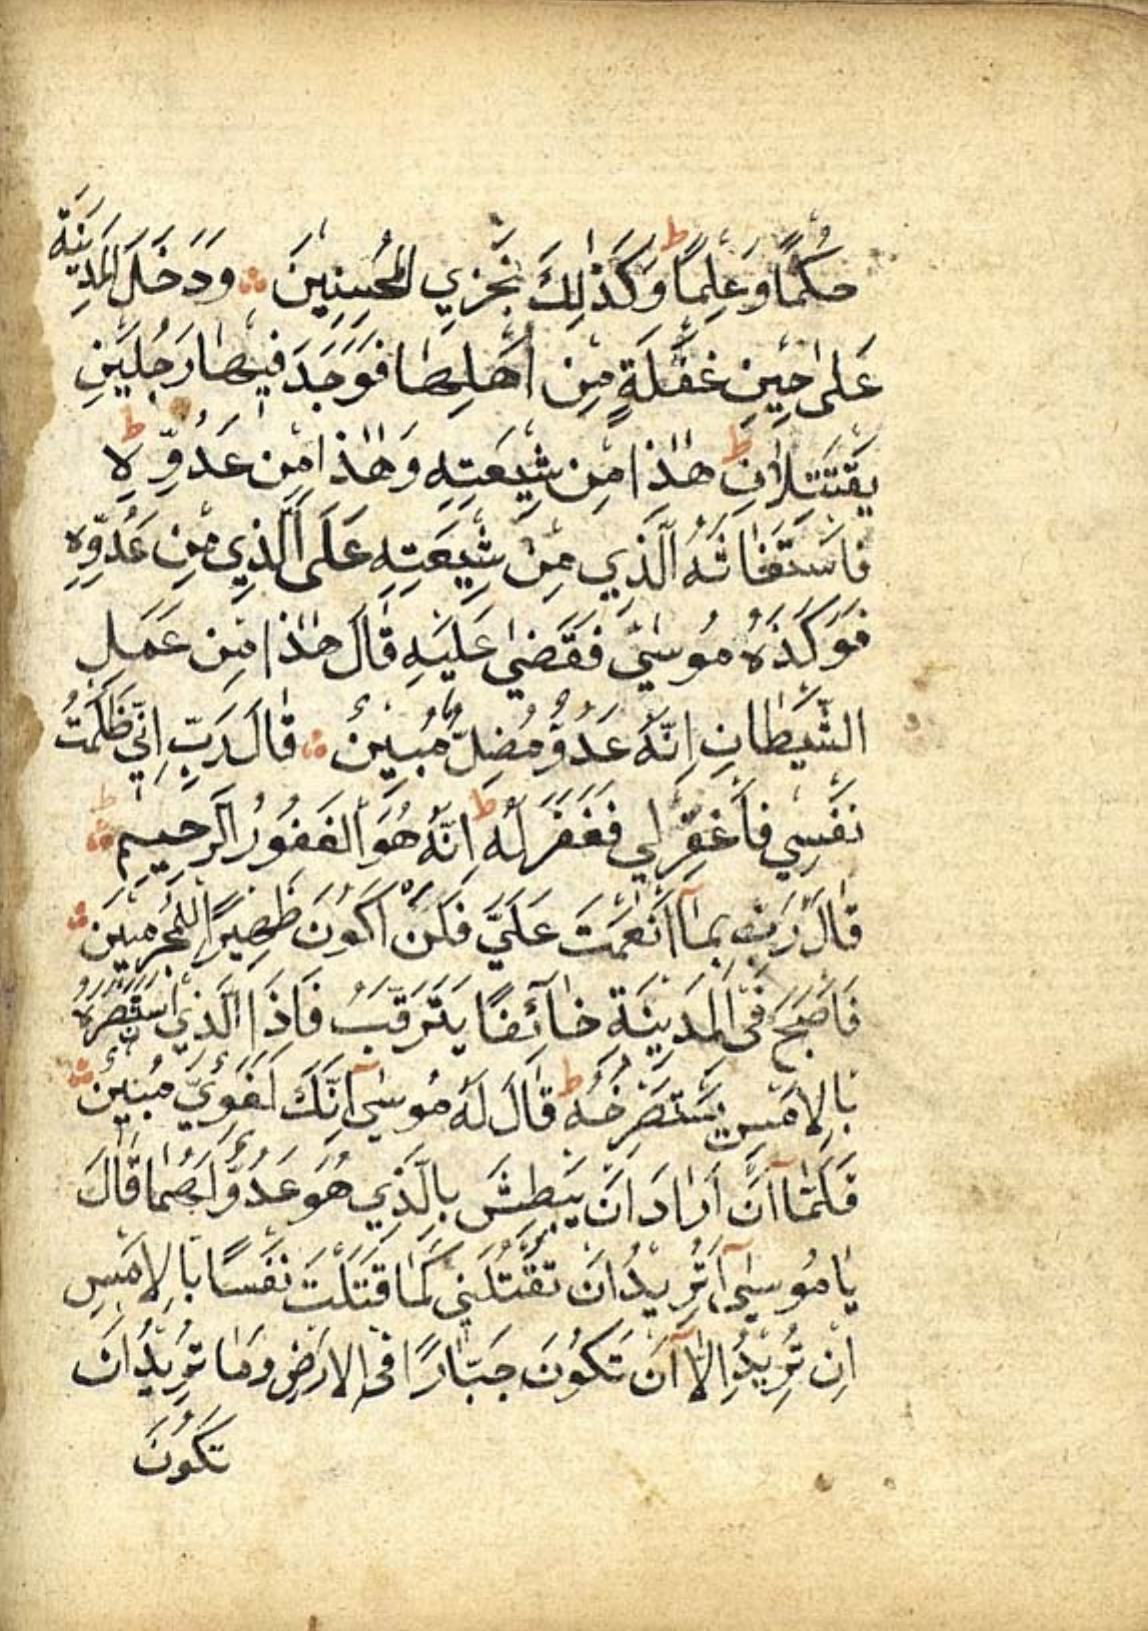 حُكْمًا وَعِلْمًا ط وَكَذٰلِكَ نَجْزِي الْمُحْسِنِينَ ∴ وَدَخَلَ الْمَدِينَةَ
عَلٰى حِينِ غَفْلَةٍ مِنْ اَهْلِهَا فَوَجَدَ فِيهَا رَجُلَيْنِ
يَقْتَتِلَانِ ط هٰذَا مِنْ شِيعَتِهِ وَهٰذَا مِنْ عَدُوِّهِ ط
فَاسْتَغَاثَهُ الَّذِي مِنْ شِيعَتِهِ عَلَى الَّذِي مِنْ عَدُوِّهِ
فَوَكَزَهُ مُوسٰى فَقَضٰى عَلَيْهِ قَالَ هٰذَا مِنْ عَمَلِ
الشَّيْطَانِ اِنَّهُ عَدُوٌّ مُضِلٌّ مُبِينٌ ∴ قَالَ رَبِّ اِنِّي ظَلَمْتُ
نَفْسِي فَاغْفِرْ لِي فَغَفَرَ لَهُ ط اِنَّهُ هُوَ الْغَفُورُ الرَّحِيمِ ط ∴
قَالَ رَبِّ بِمَآ اَنْعَمْتَ عَلَيَّ فَلَنْ اَكُونَ ظَهِيرًا لِلْمُجْرِمِينَ ∴
فَاَصْبَحَ فِي الْمَدِينَةِ خَآئِفًا يَتَرَقَّبُ فَاِذَا الَّذِي اسْتَنْصَرَهُ
بِالْاَمْسِ يَسْتَصْرِخُهُ ط قَالَ لَهُ مُوسٰىٓ اِنَّكَ لَغَوِيٌّ مُبِينٌ ∴
فَلَمَّآ اَنْ اَرَادَ اَنْ يَبْطِشَ بِالَّذِي هُوَ عَدُوٌّ لَهُمَا قَالَ
يَا مُوسٰىٓ اَتُرِيدُ اَنْ تَقْتُلَنِي كَمَا قَتَلْتَ نَفْسًا بِالْاَمْسِ
اِنْ تُرِيدُ اِلَّآ اَنْ تَكُونَ جَبَّارًا فِي الْاَرْضِ وَمَا تُرِيدُ اَنْ
تَكُونَ